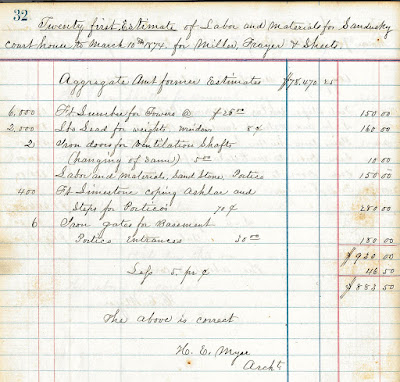 32
Twenty first Estimate of Labor and Materials for Sandusky
court house to March 10th 1874. for Miller, Frayer & Sheets
Aggregate Amt former Estimates $78.470 25
6,000 Ft Lumber for Towers @ $25.00 150 00
2,000 Lbs Lead for weights, windows 8¢ 160 00
2 Iron doors for Ventilation Shafts
(hanging of same) 5.00 10 00
Labor and Materials, Sand Stone Portico 150 00
400 Ft Limestone coping Ashlar and
Steps for Porticos 70¢ 280 00
6 Iron gates for Basement
Portico Entrances 30.00 180 00
$930 00
Less 5 pr ¢ 46 50
$883 50
The above is correct
H. E. Myer
Archt